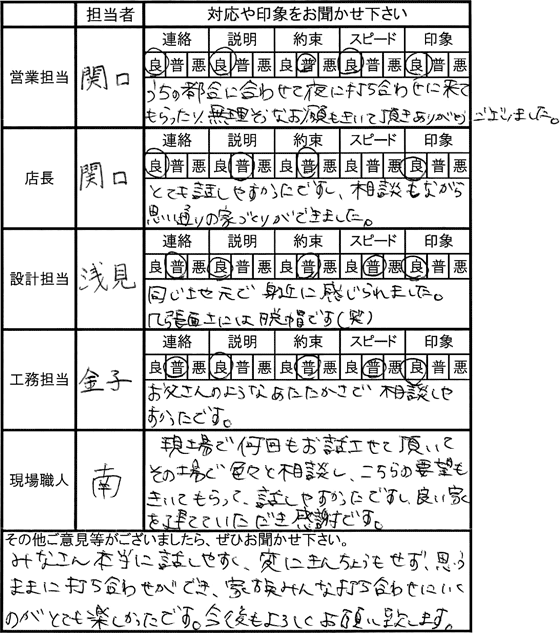 担当者 対応や印象をお聞かせ下さい
営業担当 関口
連絡 説明 約束 スピード 印象
良 普 悪 良 普 悪 良 普 悪 良 普 悪 良 普 悪
うちの都合に合わせて夜に打ち合わせに来て
もらったり、無理そうなお願いもきいて頂きありがとうございました。
店長 関口
連絡 説明 約束 スピード 印象
良 普 悪 良 普 悪 良 普 悪 良 普 悪 良 普 悪
とても話しやすかったですし、相談もながら
思い通りの家づくりができました。
設計担当 浅見
連絡 説明 約束 スピード 印象
良 普 悪 良 普 悪 良 普 悪 良 普 悪 良 普 悪
同じ地元で身近に感じられました。
几張面さには脱帽です(笑)
工務担当 金子
連絡 説明 約束 スピード 印象
良 普 悪 良 普 悪 良 普 悪 良 普 悪 良 普 悪
お父さんのようなあたたかさで 相談しや
すかったです。
現場職人 南
現場で何回もお話させて頂いて
その場で色々と相談し、こちらの要望も
きいてもらって、話しやすかったですし、良い家
を建てていただき感謝です。
その他ご意見等がございましたら、ぜひお聞かせ下さい。
みなさん本当に話しやすく、変にきんちょうもせず、思う
ままに打ち合わせができ、家族みんな打ち合わせにいく
のがとても楽しかったです。今後もよろしくお願い致します。